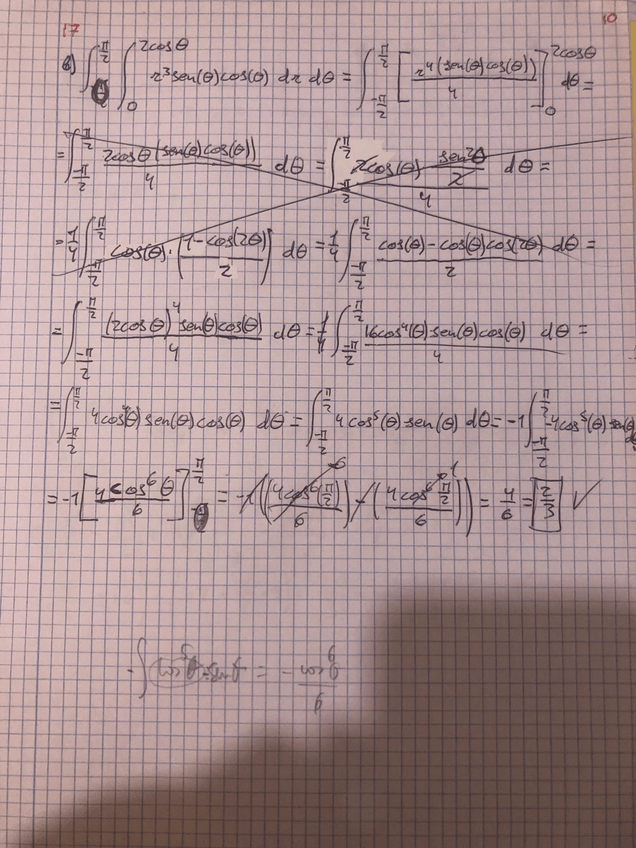 17 10
b) ∫_θ^{π/2} ∫_0^{2cosθ} r³ sen(θ) cos(θ) dr dθ = ∫_{-π/2}^{π/2} [r⁴(sen(θ)cos(θ))/4]_0^{2cosθ} dθ =
= ∫_{-π/2}^{π/2} 2cosθ(sen(θ)cos(θ))/4 dθ = ∫_{-π/2}^{π/2} (2cos(θ) · sen2θ/2)/4 dθ =
= 1/4 ∫_{-π/2}^{π/2} cos(θ)·((1-cos(2θ))/2) dθ = 1/4 ∫_{-π/2}^{π/2} (cos(θ)-cos(θ)cos(2θ))/2 dθ =
= ∫_{-π/2}^{π/2} (2cosθ)⁴ sen(θ)cos(θ)/4 dθ = 1/4 ∫_{-π/2}^{π/2} 16cos⁴(θ) sen(θ)cos(θ)/4 dθ =
= ∫_{-π/2}^{π/2} 4cos⁴(θ) sen(θ) cos(θ) dθ = ∫_{-π/2}^{π/2} 4cos⁵(θ) sen(θ) dθ = -1 ∫_{-π/2}^{π/2} -4cos⁵(θ) sen(θ) dθ
= -1 [4cos⁶θ/6]^{π/2} = -1((4cos⁶(π/2)/6) - (4cos⁶ π/2 /6)) = 4/6 = 2/3 ✓
-∫cos⁵θ·senθ = -cos⁶θ/6